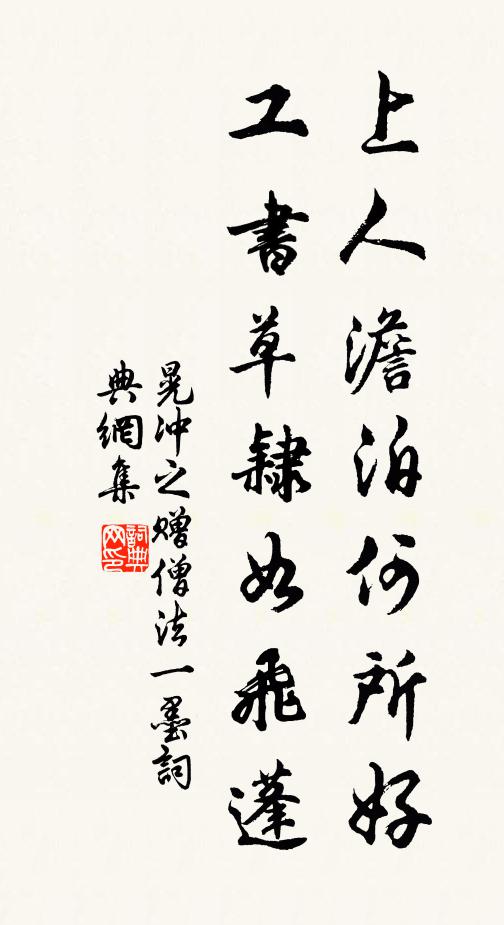 上人澹泊何所好
工書草隸如飛蓬
晁沖之贈僧法一墨詞
典網集
詞典網印